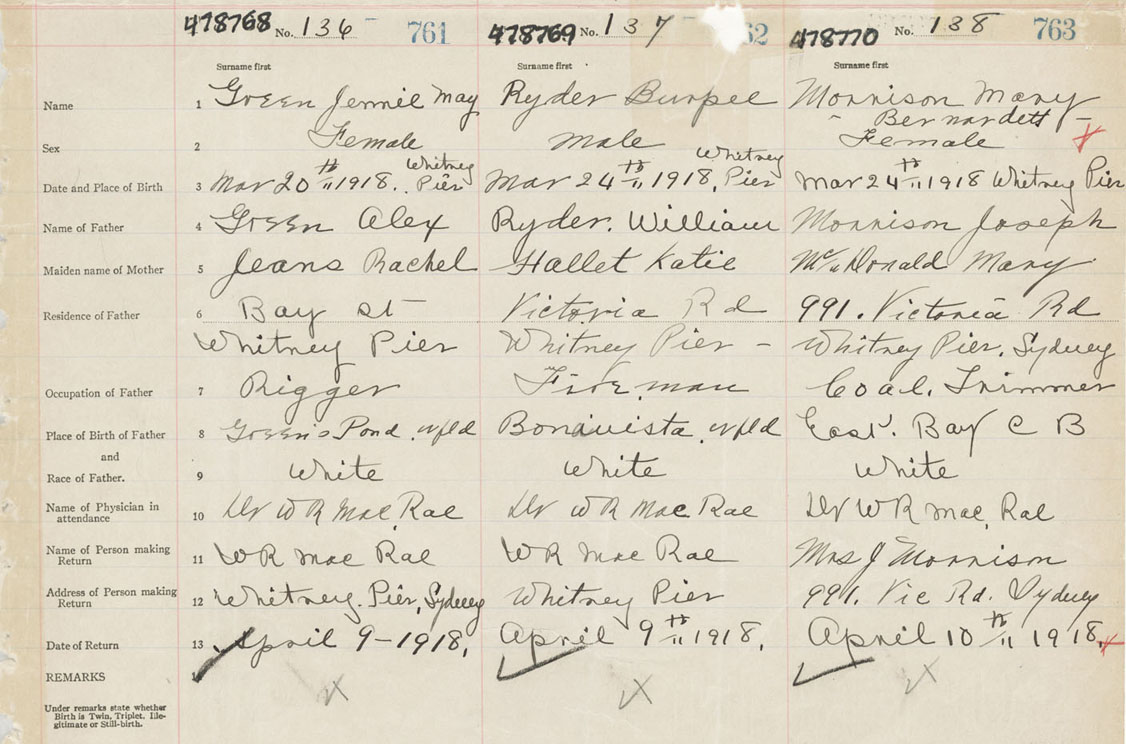 478768 No. 136 761 478769 No. 137 62 478770 No. 138 763
Surname first Surname first Surname first
Name 1 Green Jennie May Ryder Burpee Morrison Mary
Bernardett
Sex 2 Female Male Female
Whitney Whitney
Date and Place of Birth 3 Mar 20th 1918. Pier Mar 24th 1918. Pier Mar 24th 1918 Whitney Pier
Name of Father 4 Green Alex Ryder. William Morrison Joseph
Maiden name of Mother 5 Jeans Rachel Hallet Katie McDonald Mary
Residence of Father 6 Bay St Victoria Rd 991. Victoria Rd
Whitney Pier Whitney Pier - Whitney Pier, Sydney
Occupation of Father 7 Rigger Fireman Coal. Trimmer
Place of Birth of Father 8 Green's Pond. nfld Bonavista. nfld East. Bay C B
and
Race of Father. 9 White White White
Name of Physician in
attendance 10 Dr W R Mac Rae Dr W R Mac Rae Dr W R Mac Rae
Name of Person making
Return 11 W R Mac Rae W R Mac Rae Mrs J Morrison
Address of Person making
Return 12 Whitney. Pier, Sydney Whitney Pier 991. Vic Rd. Sydney
Date of Return 13 April 9-1918. April 9th 1918. April 10th 1918.
REMARKS
Under remarks state whether
Birth is Twin, Triplet, Ille-
gitimate or Still-birth.